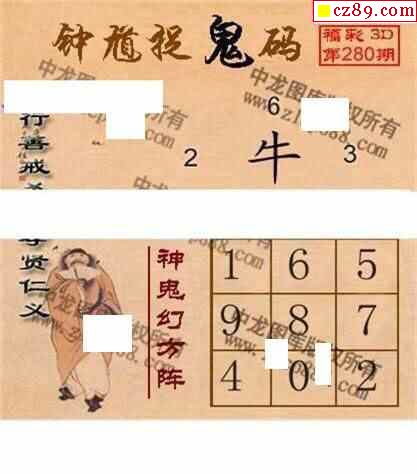 cz89.com
钟馗捉鬼码
福彩3D
第280期
中龙图库版权所有
行善戒
6
2
牛
3
中龙图库版权所有
贤仁义
神鬼幻方阵
1 6 5
9 8 7
4 0 2
中龙图库版权所有